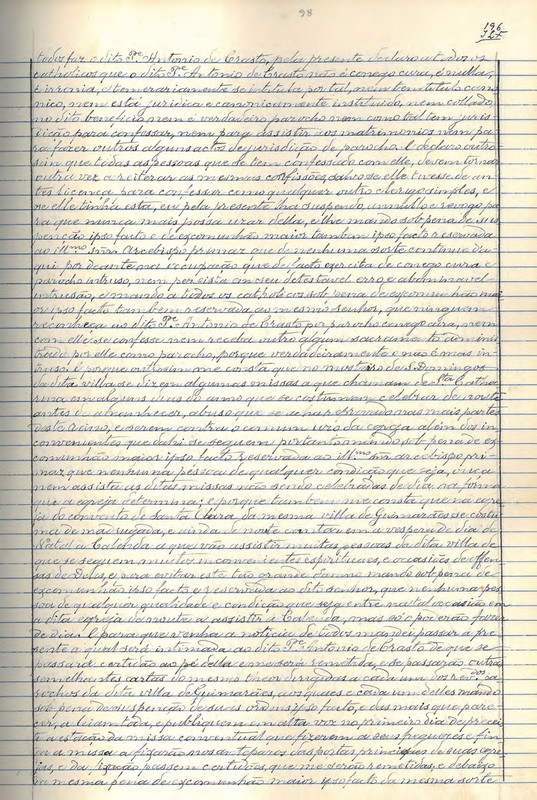 98
196
todos faz o dito Pe. Antonio de Crasto, pela presente declaro a todos os
catholicos que o dito Pe. Antonio de Crasto não é conego cura, e nulla,
e irronia, e temerariamente se intitula por tal, nem tem titulo cano
nico, nem está juridica e canonicamente instituido, nem collado
no dito beneficio, nem é verdadeiro parocho nem como tal tem juris
dicção para confessar, nem para assistir aos matrimonios nem pa
ra fazer outros alguns actos de jurisdição de parocho. E declaro outro
sim que todas as pessoas que se tem confessado com elle, devem tornar
outra vez a reiterar as mesmas confissões, salvo se elle tivesse de an
tes licença para confessar como qualquer outro clerigo simples, e
se elle tinha esta, eu pela presente lhe suspendo, annullo e revogo pa
ra que nunca mais possa uzar della, e lhe mando sob pena de sus
penção ipso facto e de excomunhão maior tambem ipso facto reservada
ao illmo. snr. Arcebispo primaz que de nenhuma sorte continue da
qui por deante na occupação que de facto exercita de conego cura e
parocho intruso, nem persista em seu detestavel erro e abominavel
intrusão, e mando a todos os catholicos sob pena de excomunhão mai
or ipso facto tambem reservada ao mesmo senhor, que ninguem
reconheça ao dito Pe. Antonio de Crasto por parocho conego cura, nem
com elle se confesse nem receba outro algum sacramento admini
strado por elle como parocho, porque verdadeiramente o não é mas in
truso. E porque outrosim me consta que no mosteiro de S. Domingos
da dita villa, se dizem algumas missas a que chamam de Sta. Catha
rina em alguns dias do anno que se costumam celebrar de noute
antes de amanhecer, abuso que se acha extincto nas mais partes
deste reino, e serem contra o comum uzo da egreja alem dos in
convenientes que dahi se seguem portanto mando sob pena de ex
comunhão maior ipso facto reservada ao illmo. snr. arcebispo pri
maz que nenhuma pessoa de qualquer condição que seja, ouça
nem assista ás ditas missas não sendo celebradas de dia na forma
que a egreja determina: E porque tambem me consta que na egre
ja do convento de Santa Clara da mesma villa de Guimarães se costu
ma de madrugada, e ainda de noute cantarem a vespera de dia de
Natal a Calenda a que vão assistir muitas pessoas da dita villa de
que se seguem muitos inconvenientes espirituaes, e occasiões de offen
sas de Deus, e para evitar este tão grande damno mando sob pena de
excomunhão ipso facto reservada ao dito senhor, que nenhuma pes
soa de qualquer qualidade e condição que seja entre na tal occasião em
a dita egreja da noute a assistir á Calenda, mas só o poderão fazer
de dia. E para que venha a noticia de todos mandei passar a pre
sente a qual será intimada ao dito Pe. Antonio de Crasto de que se
passará certidão ao pé della e me será remettida, e se passarão outras
semelhantes cartas do mesmo theor dirigidas a cada um dos revdos. pa
rochos da dita villa de Guimarães, aos quaes e cada um delles mando
sob pena de suspenção de suas ordens ipso facto, e das mais que pare
cer, a leiam toda, e publiquem em alta voz no primeiro dia de precei
to a estação da missa conventual que fizerem a seus freguezes e fin
da a missa a fixarão nos antepáros das portas principaes de suas egre
jas, e da fixação passem certidões, que me serão remettidas, e debaixo
da mesma pena de excomunhão maior ipso facto da mesma sorte